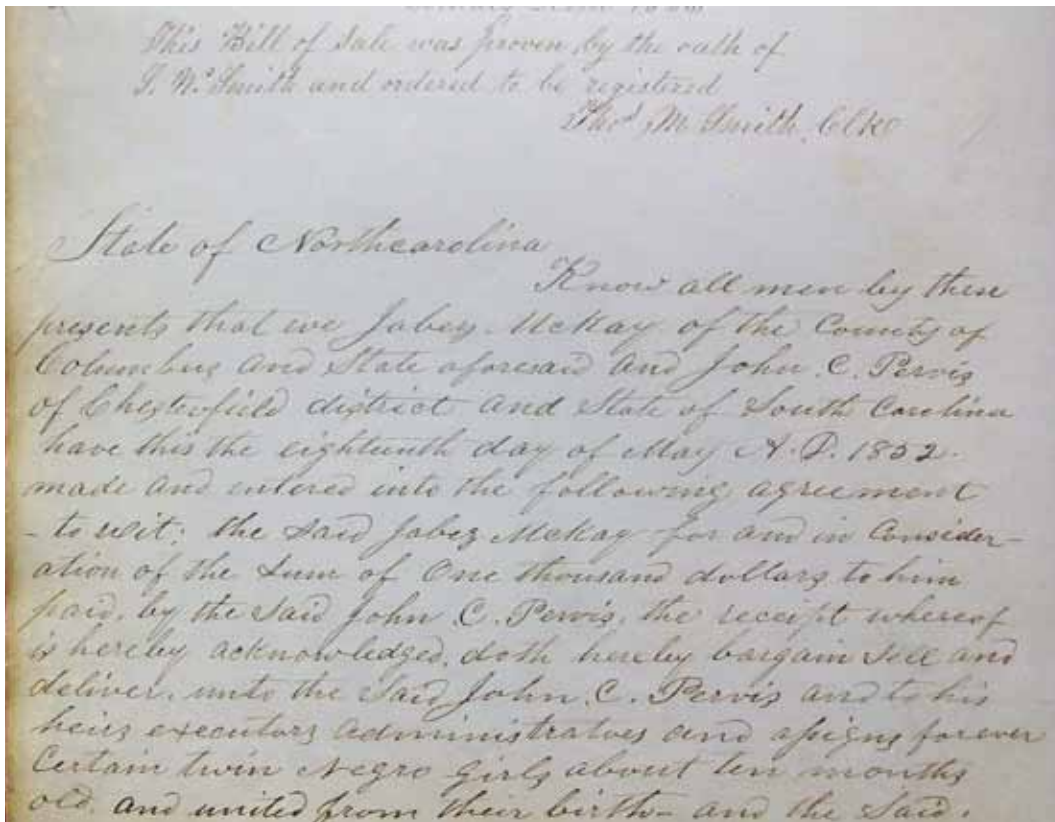 This Bill of Sale was proven by the oath of
J. W. Smith and ordered to be registered
Thos. M. Smith, Clk
State of Northcarolina
Know all men by these
presents that we Jabez McKay of the County of
Columbus and State aforesaid and John C. Pervis
of Chesterfield district and State of South Carolina
have this the eighteenth day of May A. D. 1852
made and entered into the following agreement
- to wit; the said Jabez McKay for and in Consider-
ation of the Sum of One thousand dollars to him
paid, by the said John C. Pervis, the receipt whereof
is hereby acknowledged, doth hereby bargain sell and
deliver, unto the said John C. Pervis and to his
heirs executors administrators and assigns forever
Certain twin Negro girls about ten months
old and united from their birth - and the said